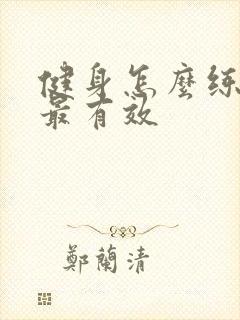 健身怎麼練
最有效
鄭蘭清